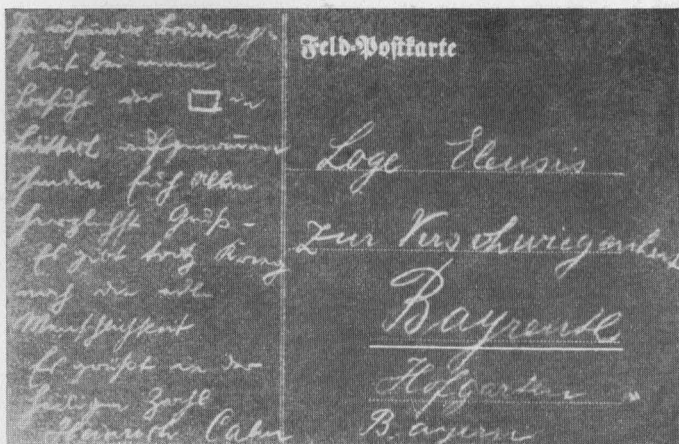 In rührender Brüderlich-
keit bei meinem
Besuche der in
aufgenommen
senden Euch allen
herzlichst Gruß –
Es gibt trotz Krieg
noch die edle
Menschlichkeit
Es grüßt in der
heiligen Zahl
Heinrich Cahn
Feld-Postkarte
Loge Eleusis
zur Verschwiegenheit
Bayreuth
Hofgarten
Bayern